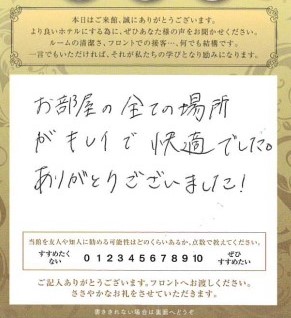 本日はご来館、誠にありがとうございます。
より良いホテルにする為に、ぜひあなた様の声をお聞かせください。
ルームの清潔さ、フロントでの接客…、何でも結構です。
一言でもいただければ、それが私たちの学びとなり励みになります。
お部屋の全ての場所
がキレイで快適でした。
ありがとうございました!
当館を友人や知人に勧める可能性はどのくらいあるか、点数で教えてください。
すすめたく
ない
0 1 2 3 4 5 6 7 8 9 10
ぜひ
すすめたい
ご記入ありがとうございます。フロントへお渡しください。
ささやかなお礼をさせていただきます。
書ききれない場合は裏面へどうぞ